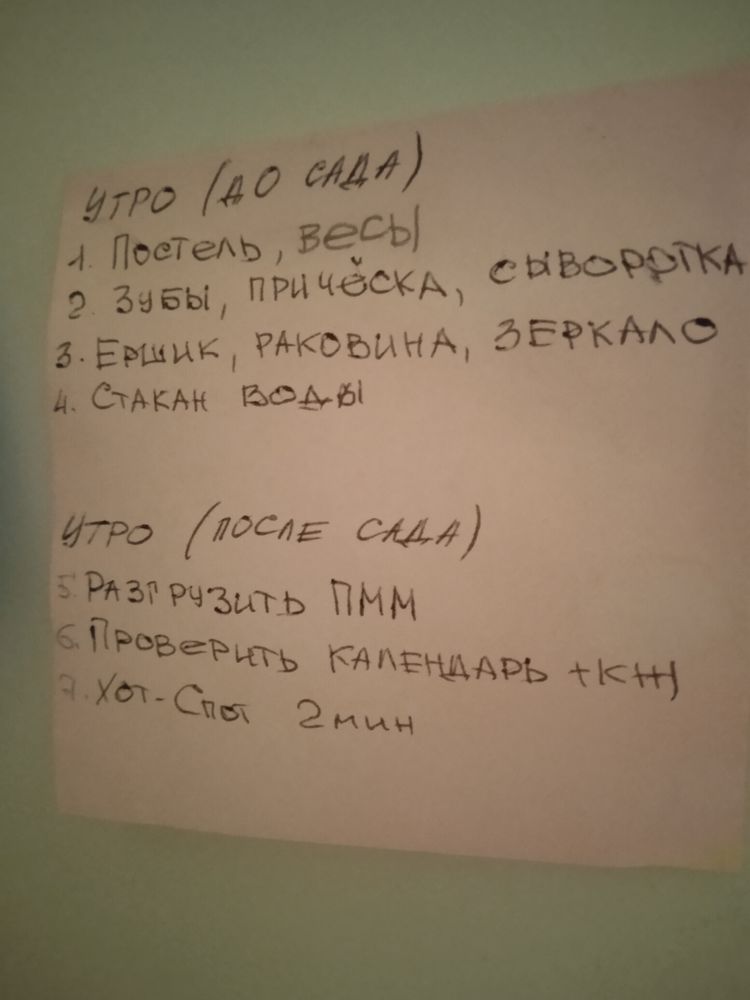 УТРО (ДО САДА)
1. Постель, весы
2. Зубы, причёска, сыворотка
3. Ершик, раковина, зеркало
4. Стакан воды
УТРО (ПОСЛЕ САДА)
5. Разгрузить ПММ
6. Проверить календарь + КЖ
7. Хот-Спот 2 мин